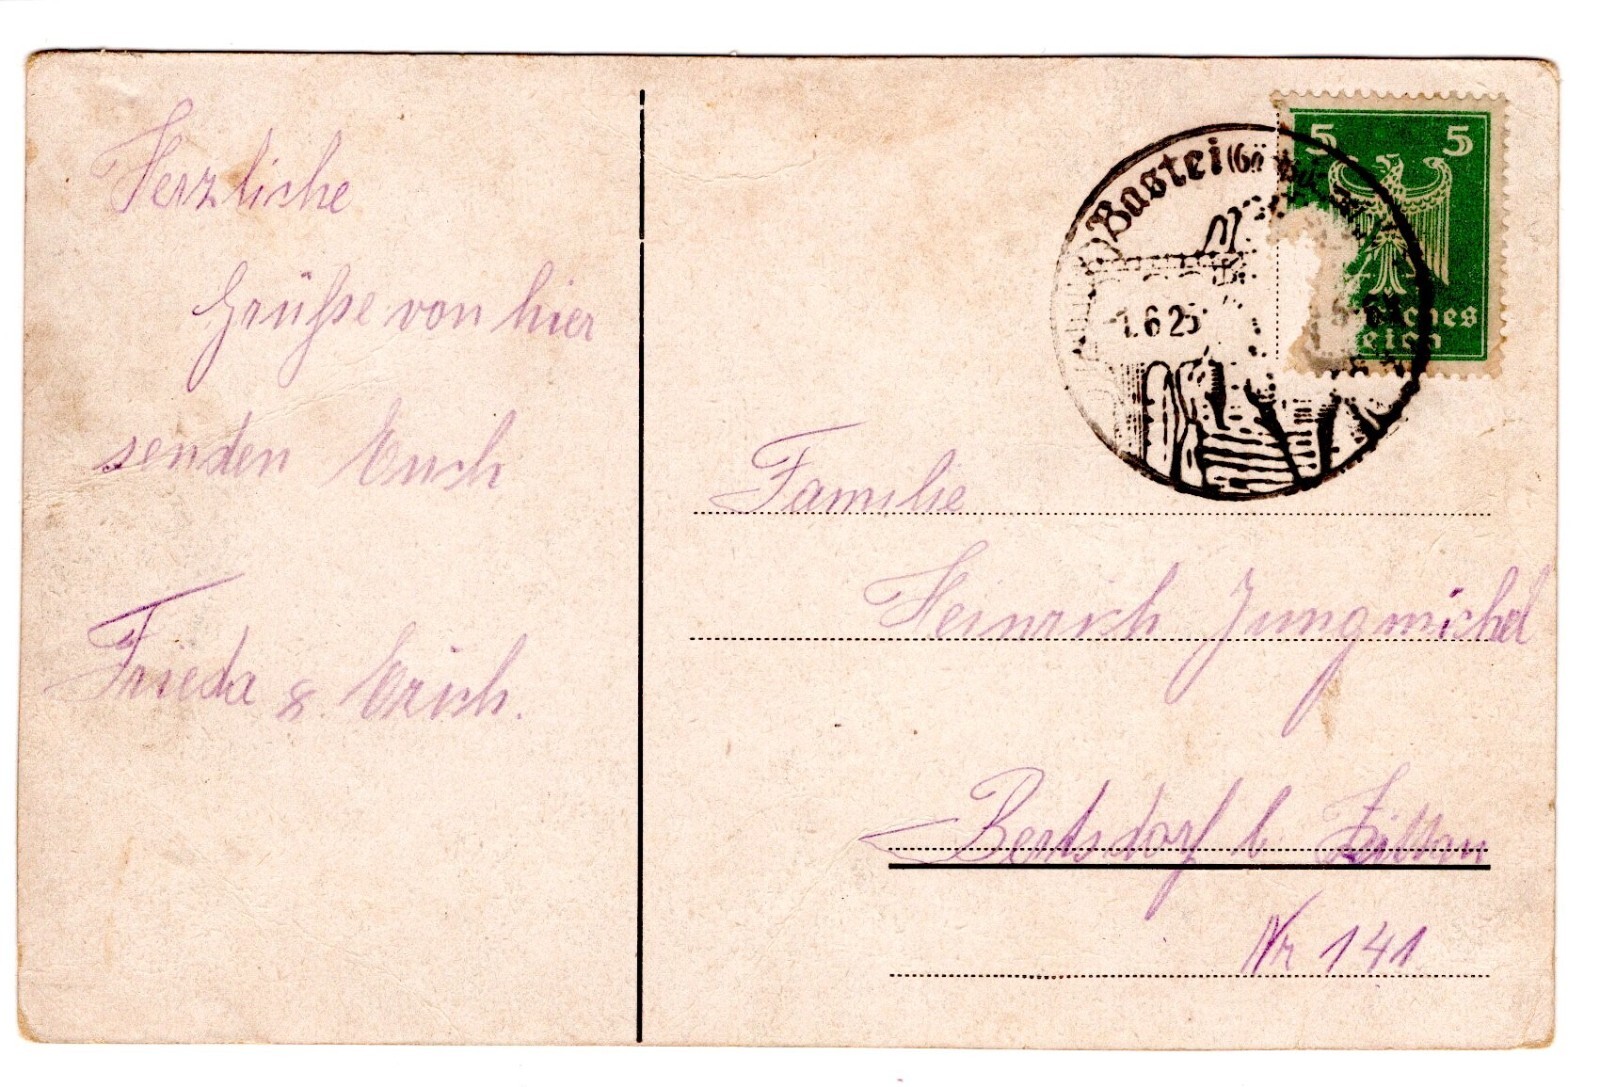 Herzliche
Grüße von hier
senden Euch
Frieda & Erich.
5 5
Bastei
1.6.25
Familie
Heinrich Jungmichel
Bertsdorf b Zittau
Nr 141